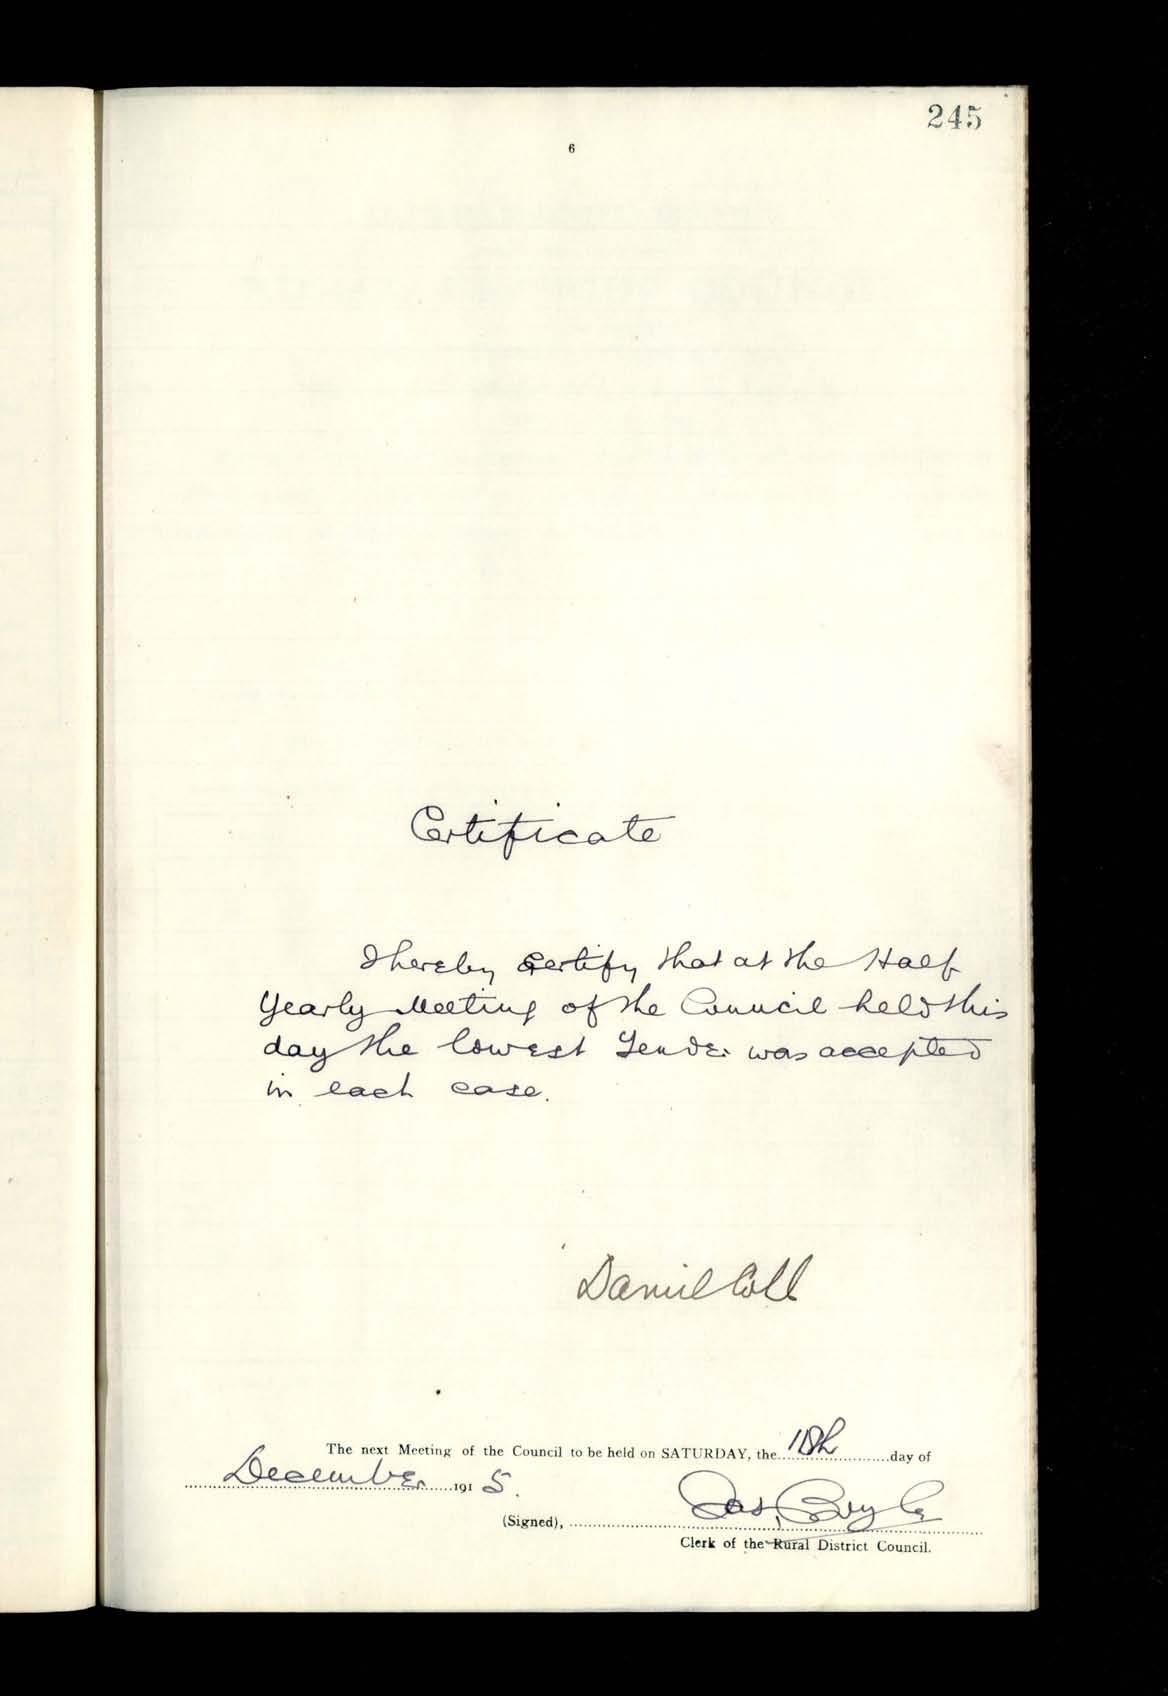 245
6
Certificate
I hereby Certify that at the Half
Yearly Meeting of the Council held this
day the lowest Tender was accepted
in each case.
Daniel Coll
The next Meeting of the Council to be held on SATURDAY, the 11th day of
December 1915.
(Signed), Jas. Boyle
Clerk of the Rural District Council.